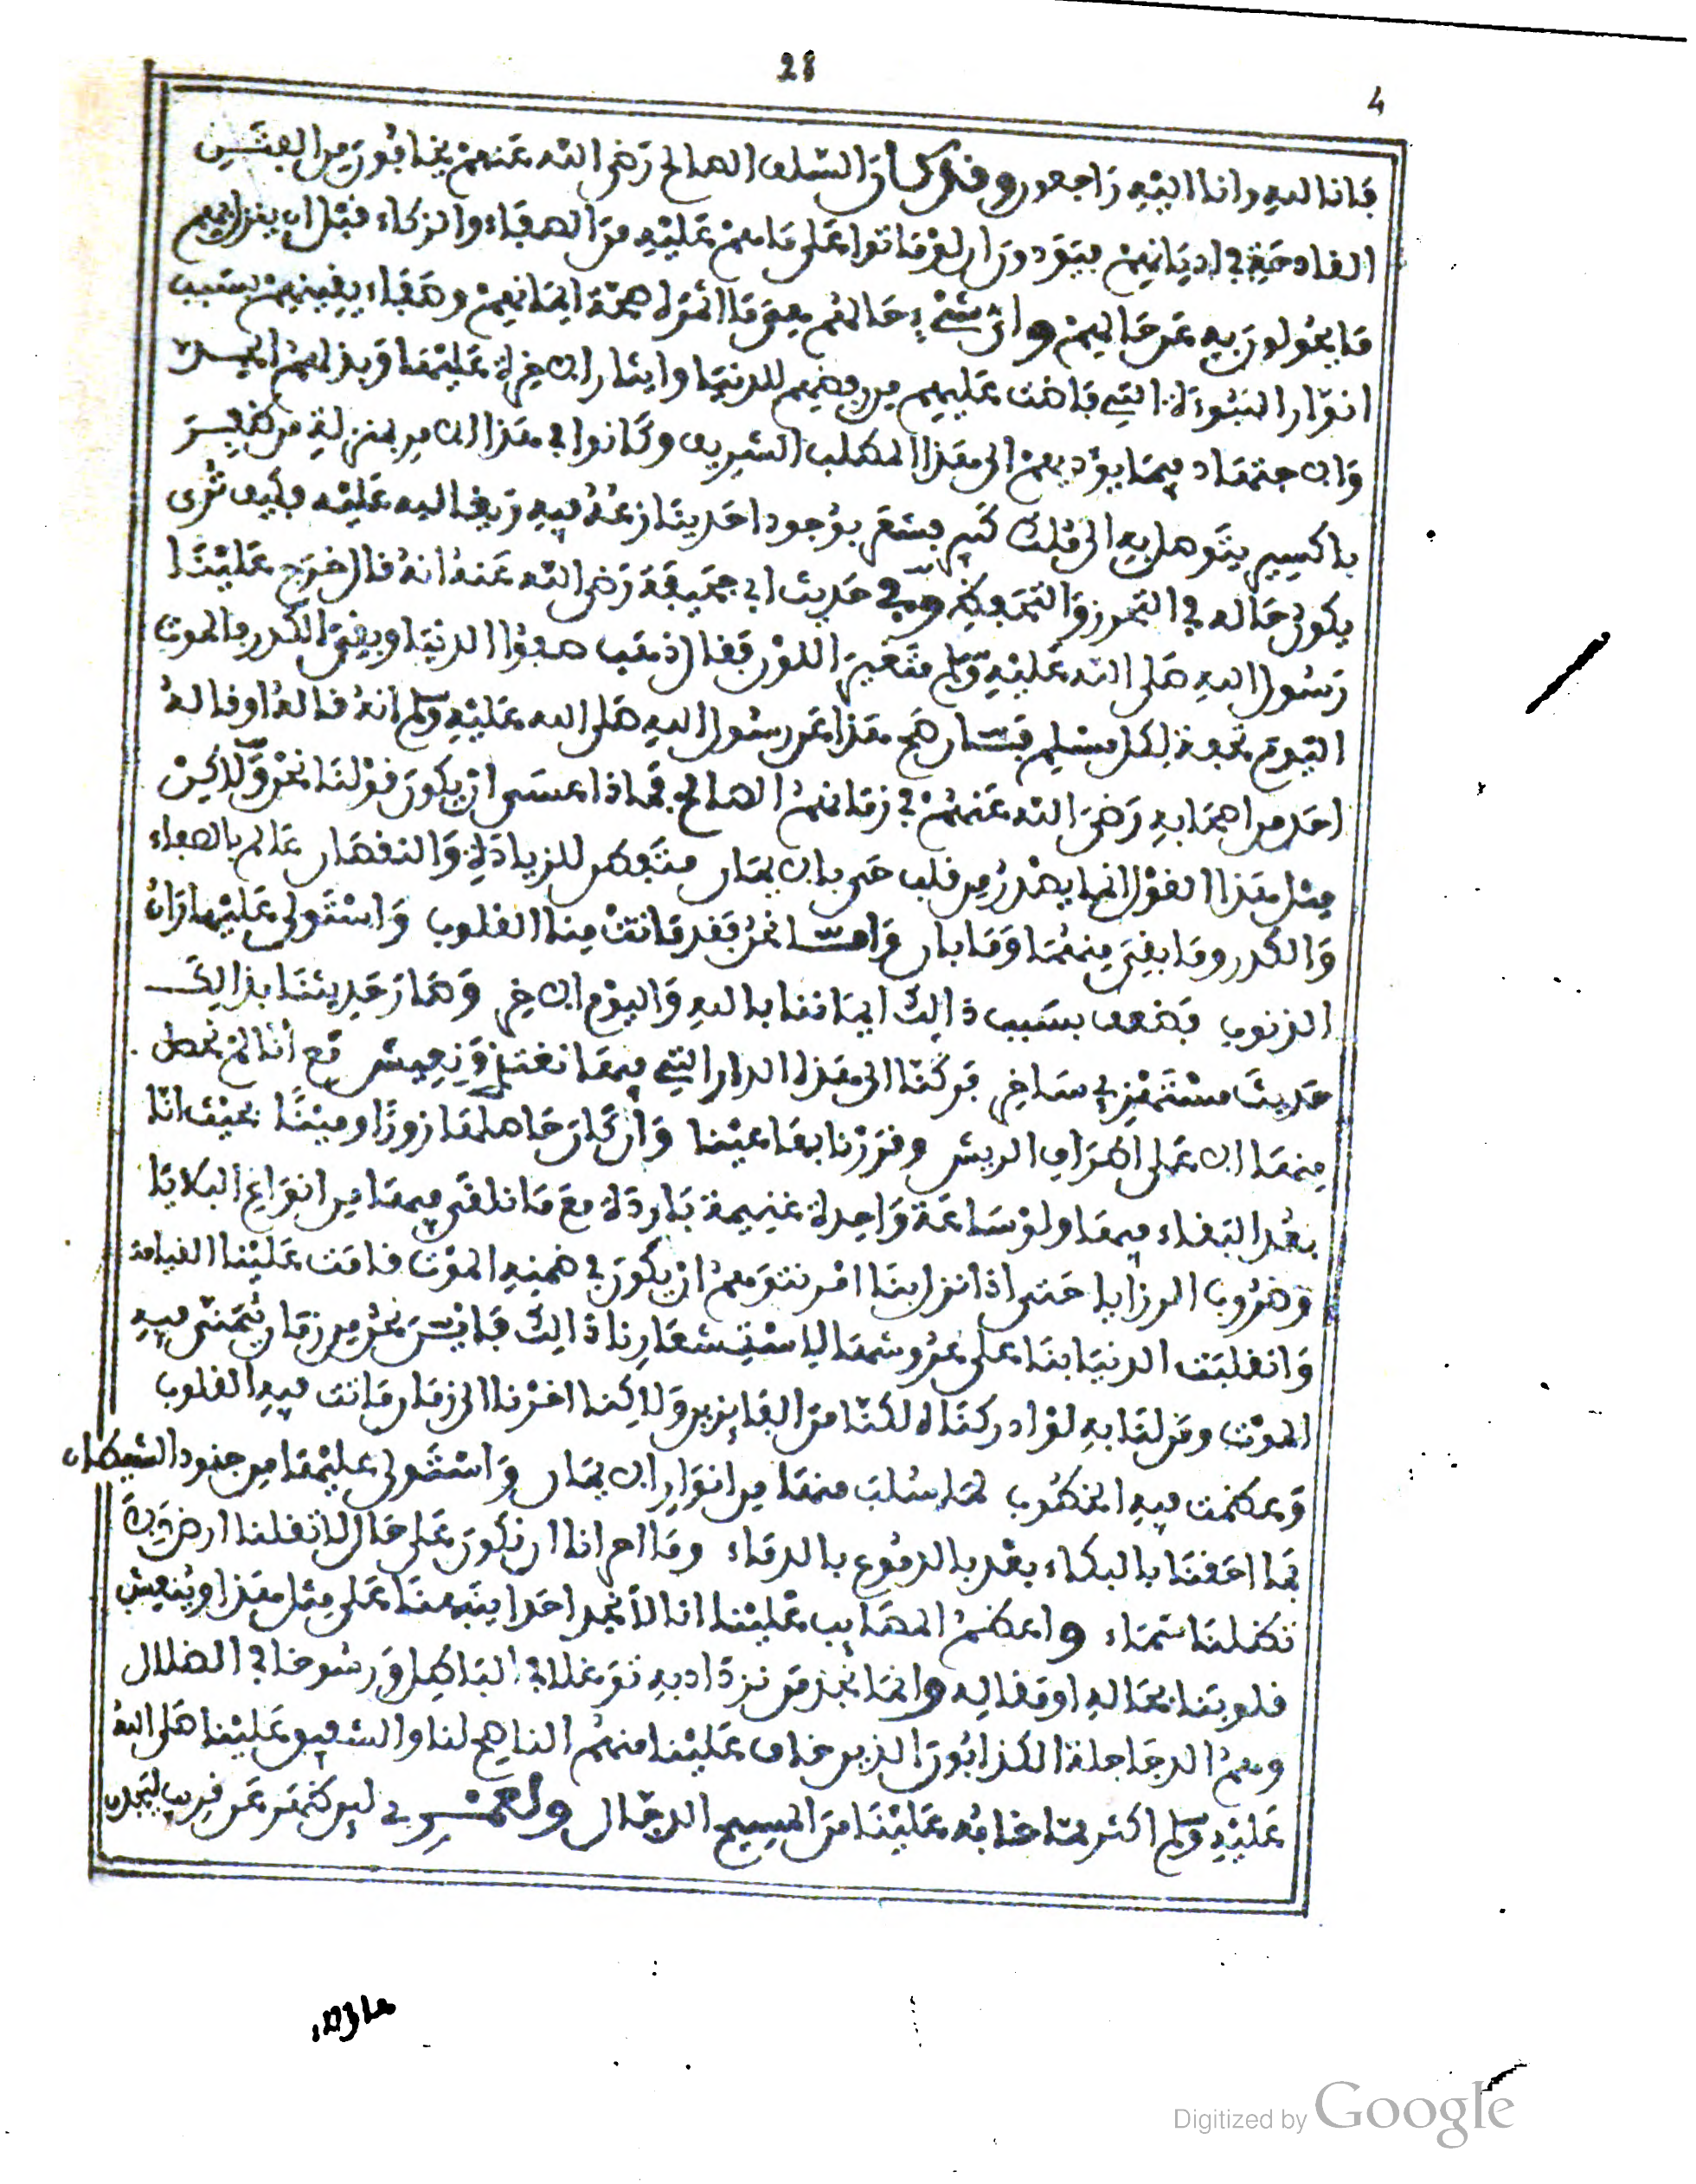 28
4
فانا لله وانا اليه راجعون وقد كان السلف الصالح رضي الله عنهم يخافون من الفتن
الفادحة في اديانهم فيود وان لو ماتوا على ما هم عليه من الصفاء والزكاء قبل ان ينزل بهم
ما يحولون به عن حالهم وان شيء حالهم هو ما اثمر له صحة ايمانهم وصفاء يقينهم بسبب
انوار النبوة التي فاضت عليهم من رفضهم للدنيا وايثار الاخرة عليها وبذلهم الجد
والاجتهاد فيما يؤديهم الى هذا المطلب الشريف وكانوا في هذا الامر بمنزلة من ظفر
باكسير يتوصل به الى ملك كبير فشعر بوجود احد ينازعه فيه رفيقا له عليه فكيف ترى
يكون حاله في التحرز والتحفظ وفي حديث ابي جحيفة رضي الله عنه انه قال خرج علينا
رسول الله صلى الله عليه وسلم متغير اللون فقال ذهب صفو الدنيا وبقي الكدر فالموت
اليوم تحفة لكل مسلم فان صح هذا عن رسول الله صلى الله عليه وسلم انه قاله او قاله
احد من اصحابه رضي الله عنهم في زمانهم الصالح فماذا عسى ان يكون قولنا نحن ولاكن
مثل هذا القول انما يصدر من قلب حي بالايمان متفطن للزيادة والنقصان عالم بالصفاء
والكدر وما بقي منهما وما بان واما نحن فقد ماتت منا القلوب واستولى عليها ران
الذنوب فضعف بسبب ذالك ايماننا بالله واليوم الاخر وصار حديثنا بذالك
حديث مستهزئ ساخر فركنا الى هذه الدار التي فيها نغتر ونعيش مع انا لم نحصل
منها الا على اطراف الريش وقررنا بها عينا وان كان حاصلها زورا ومينا بحيث انا
نعد البقاء فيها ولو ساعة واحدة غنيمة باردة مع ما نلقى فيها من انواع البلايا
وضروب الرزايا حتى اذا نزل بنا امر نتوهم ان يكون في ضمنه الموت قامت علينا القيامة
وانقلبت الدنيا بنا على عروشها لاستشعارنا ذالك فاين نحن من زمان يتمنى فيه
الموت ومن لنا به لو ادركناه لكنا من الفائزين ولاكنا اخرنا الى زمان ماتت فيه القلوب
وعظمت فيه الخطوب لما سلب منها من انوار الايمان واستولى عليها من جنود الشيطان
فما احقنا بالبكاء بعد بالدموع بالدماء وما احرانا ان نكون على حال لا تقلنا ارض ولا
تظلنا سماء واعظم المصايب علينا انا لا نجد احدا يتبعنا على مثل هذا وينعش
قلوبنا بحاله او مقاله وانما نجد من نزداد به توغلا في الباطل ورسوخا في الضلال
وهم الدجاجلة الكذابون الذين خاف علينا منهم الناصح لنا والشفيق علينا صلى الله
عليه وسلم اكثر مما خافه علينا من المسيح الدجال ولعمري لين كنت عن قريب
Digitized by Google